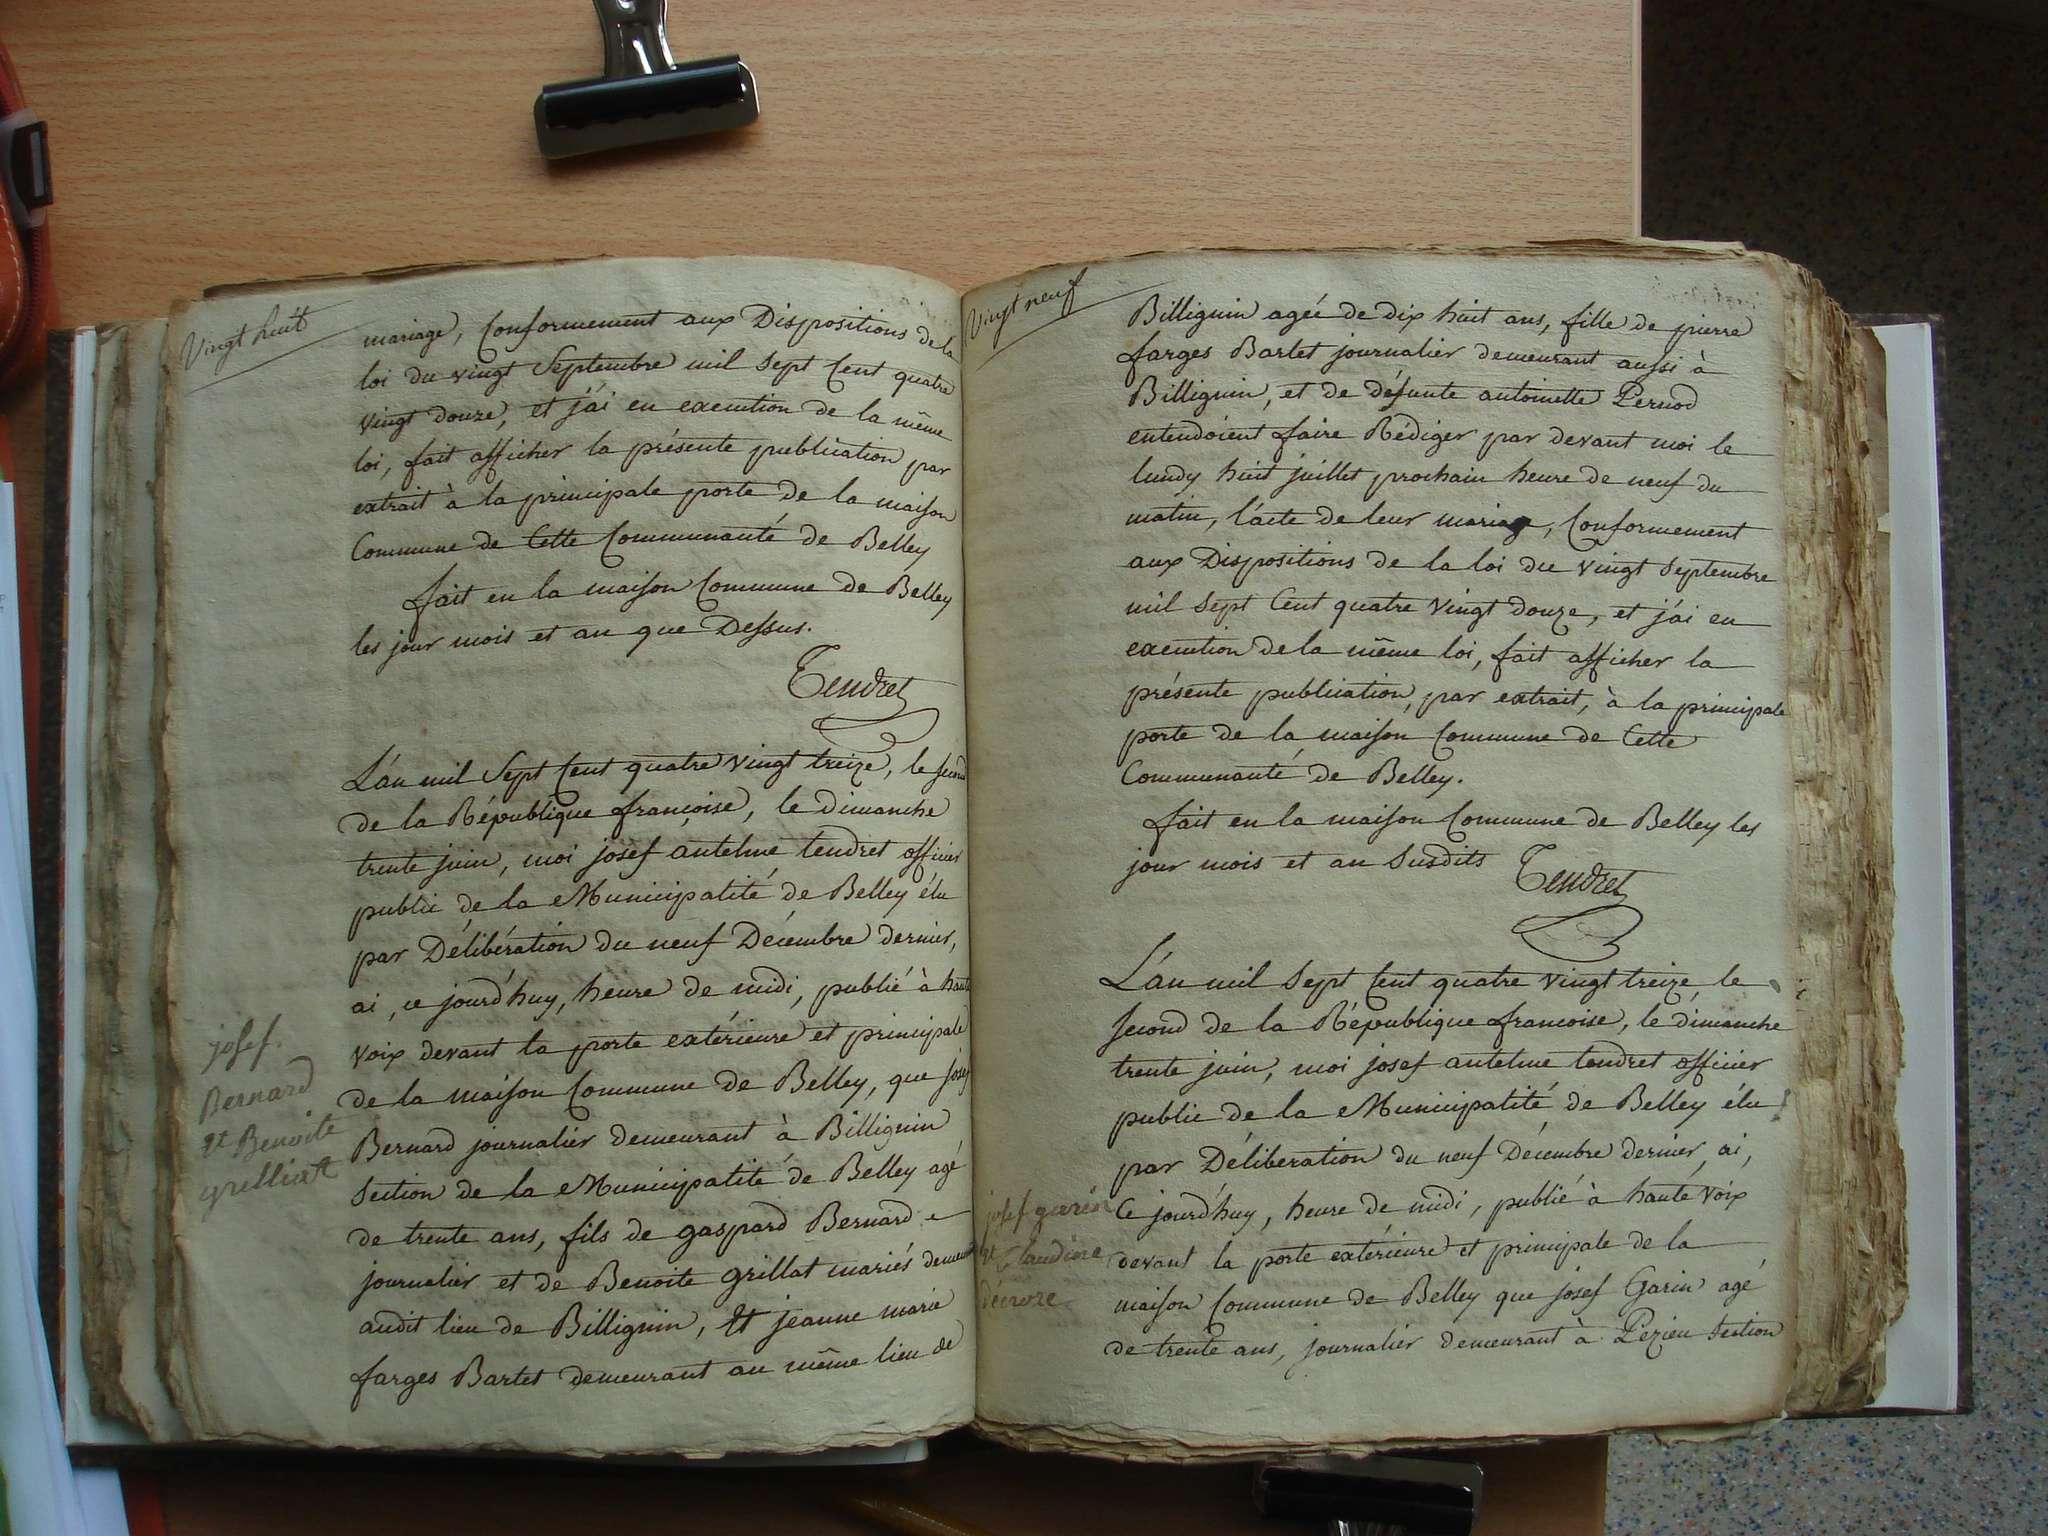 Vingt huit
mariage, Conformement aux Dispositions de la
loi du vingt Septembre mil Sept Cent quatre
vingt douze, et j'ai en execution de la même
loi, fait afficher la présente publication par
extrait à la principale porte de la maison
Commune de Cette Communauté de Belley
fait en la maison Commune de Belley
les jour mois et an que Dessus.
Tendret
L'an mil Sept Cent quatre vingt treize, le second
de la République françoise, le dimanche
trente juin, moi josef antelme tendret officier
public de la Municipalité de Belley élu
par Délibération du neuf Décembre dernier,
ai, ce jourd'huy, heure de midi, publié à haute
voix devant la porte extérieure et principale
de la maison Commune de Belley, que josef
Bernard journalier demeurant à Billignin
Section de la Municipalité de Belley agé
de trente ans, fils de gaspard Bernard
journalier et de Benoite grillat mariés demeurant
audit lieu de Billignin, Et jeanne marie
farges Bartet demeurant au même lieu de
josef.
Bernard
et Benoite
Vingt neuf
Billignin agée de dix huit ans, fille de pierre
farges Bartet journalier demeurant aussi à
Billignin, et de défunte antoinette Pernod
entendoient faire Rédiger par devant moi le
lundy huit juillet prochain heure de neuf du
matin, l'acte de leur mariage, Conformement
aux Dispositions de la loi du vingt Septembre
mil Sept Cent quatre vingt douze, et j'ai en
execution de la même loi, fait afficher la
présente publication, par extrait, à la principale
porte de la maison Commune de Cette
Communauté de Belley.
fait en la maison Commune de Belley les
jour mois et an Susdits
Tendret
L'an mil Sept Cent quatre vingt treize, le
second de la République francoise, le dimanche
trente juin, moi josef antelme tendret officier
public de la Municipalité de Belley élu
par Déliberation du neuf Décembre dernier, ai,
Ce jourd'huy, heure de midi, publié à haute voix
devant la porte extérieure et principale de la
maison Commune de Belley que josef Garin agé
de trente ans, journalier demeurant à Pezieu Section
josef garin
et Claudine